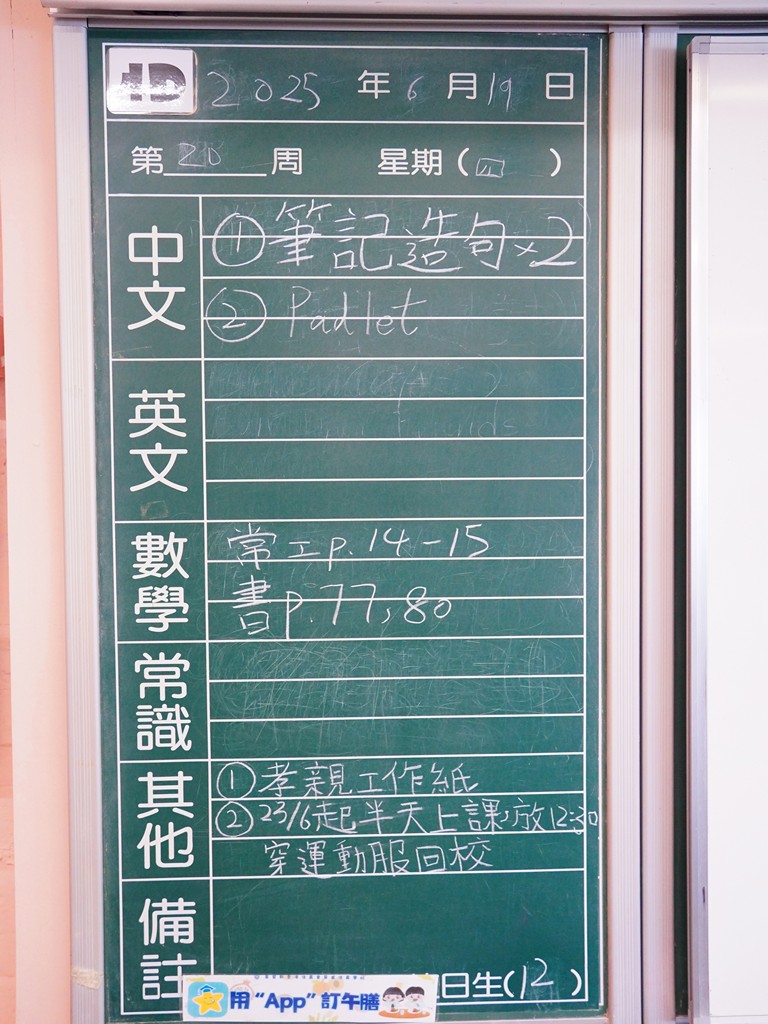 4D 2025 年 6 月 19 日
第 20 周 星期 ( 四 )
中文
① 筆記造句×2
② Padlet
英文
數學
常工p.14-15
書p.77,80
常識
其他
① 孝親工作紙
② 23/6起半天上課,放12:30
穿運動服回校
備註
日生(12)
用“App”訂午膳